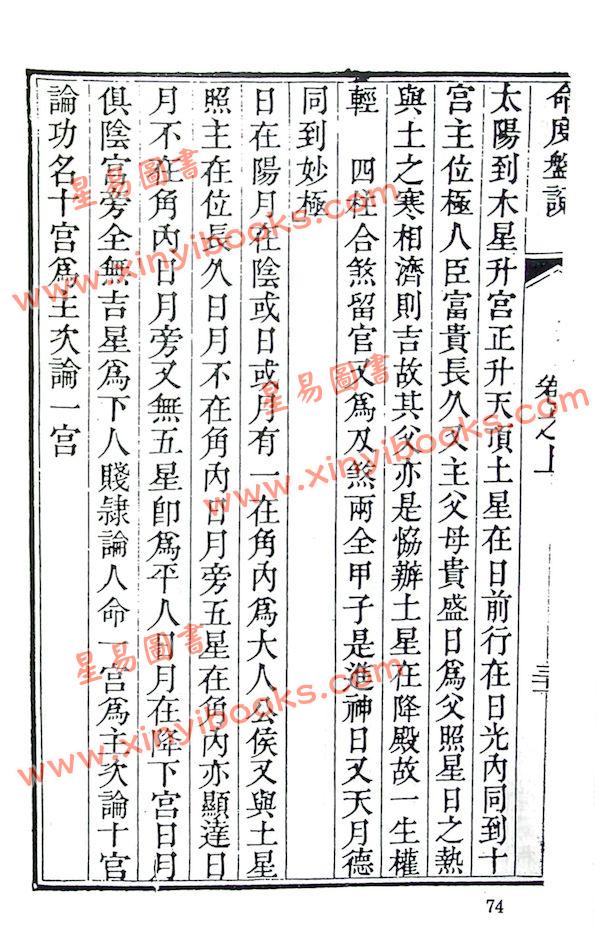 命度盤說
卷之上
太陽到木星升宮正升天頂土星在日前行在日光內同到十
宮主位極人臣富貴長久又主父母貴盛日為父照星日之熱
與土之寒相濟則吉故其父亦是協辦土星在降殿故一生權
輕　四柱合煞留官又為刃煞兩全甲子是進神日又天月德
同到妙極
日在陽月在陰或日或月有一在角內為大人公侯又與土星
照主在位長久日月不在角內日月旁五星在角內亦顯達日
月不在角內日月旁又無五星即為平人日月在降下宮日月
俱陰宮旁全無吉星為下人賤隸論人命一宮為主次論十宮
論功名十宮為主次論一宮
74
星易圖書
www.xinyibooks.com
星易圖書
www.xinyibooks.com
星易圖書
www.xinyibooks.com